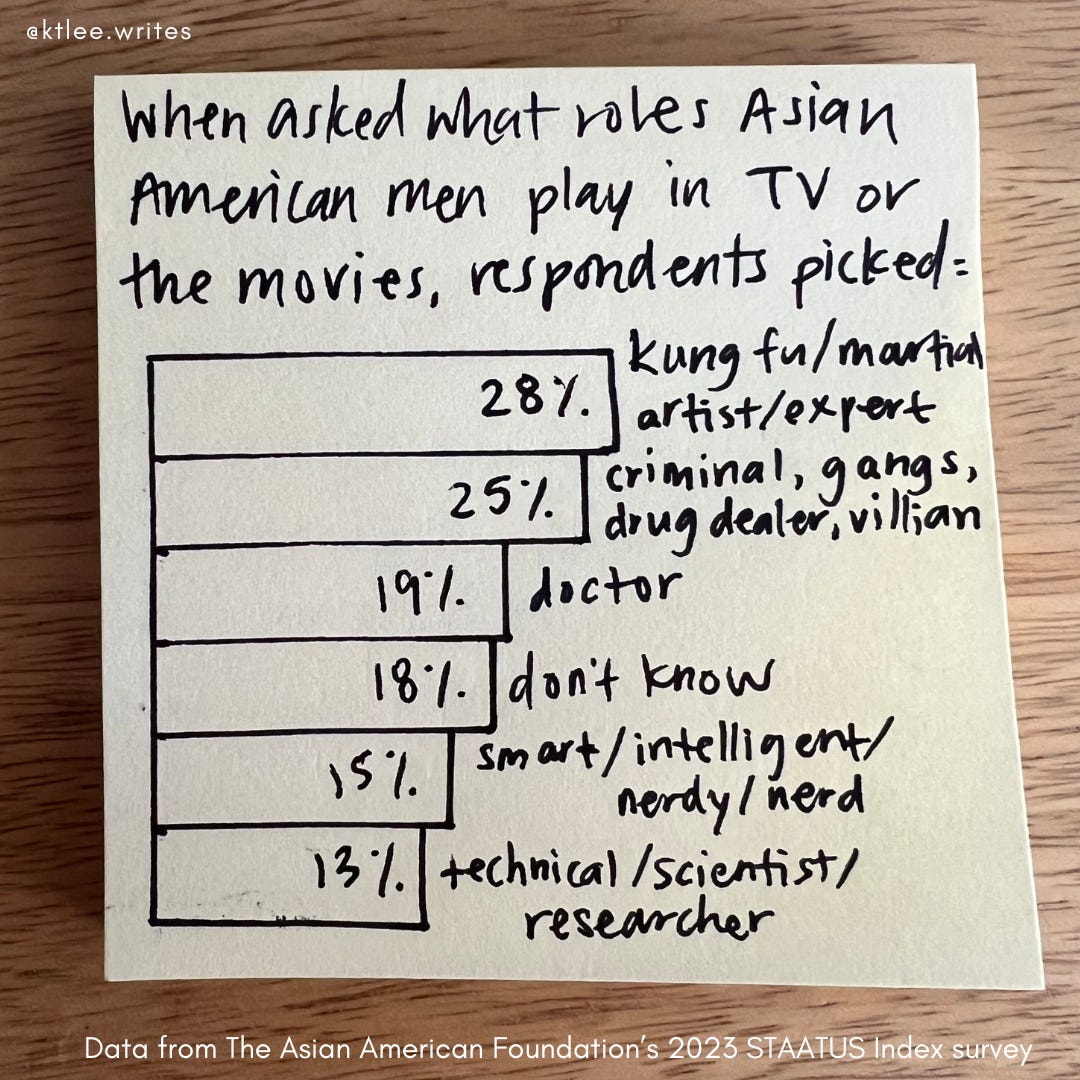 @ktlee.writes
When asked what roles Asian
American men play in TV or
the movies, respondents picked:
28% kung fu/martial
artist/expert
25% criminal, gangs,
drug dealer, villian
19% doctor
18% don't know
15% smart/intelligent/
nerdy/nerd
13% technical/scientist/
researcher
Data from The Asian American Foundation's 2023 STAATUS Index survey